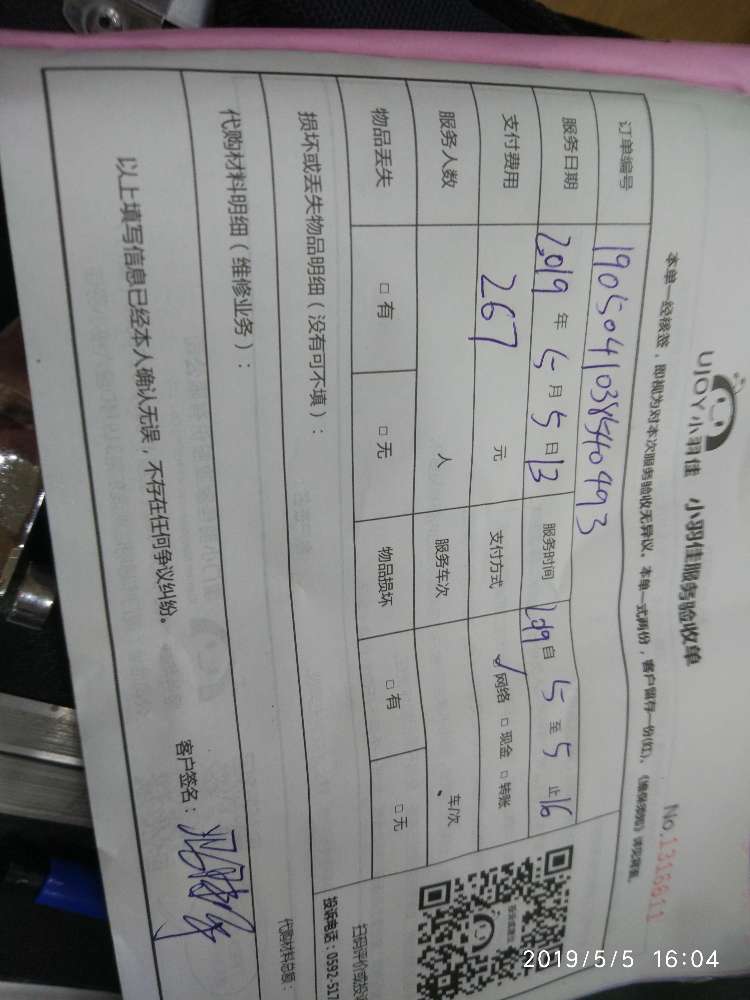 UJOY小羽佳 小羽佳服务验收单
No.1318811
本单一经接签，即视为对本次服务验收无异议。本单一式两份，客户留存一份(红)。
订单编号 19050410385440493
服务日期 2019 年 5 月 5 日 13 服务时间 2019 自 5 至 5 止 16
支付费用 267 元 支付方式 ✓网络 □ 现金 □ 转账
服务人数 人 服务车次 车/次
物品丢失 □ 有 □ 无 物品损坏 □ 有 □ 无
损坏或丢失物品明细（没有可不填）：
扫码评价或投
投诉电话：0592-517
代购材料明细（维修业务）：
代购材料总额：
以上填写信息已经本人确认无误，不存在任何争议纠纷。
客户签名：
2019/5/5 16:04